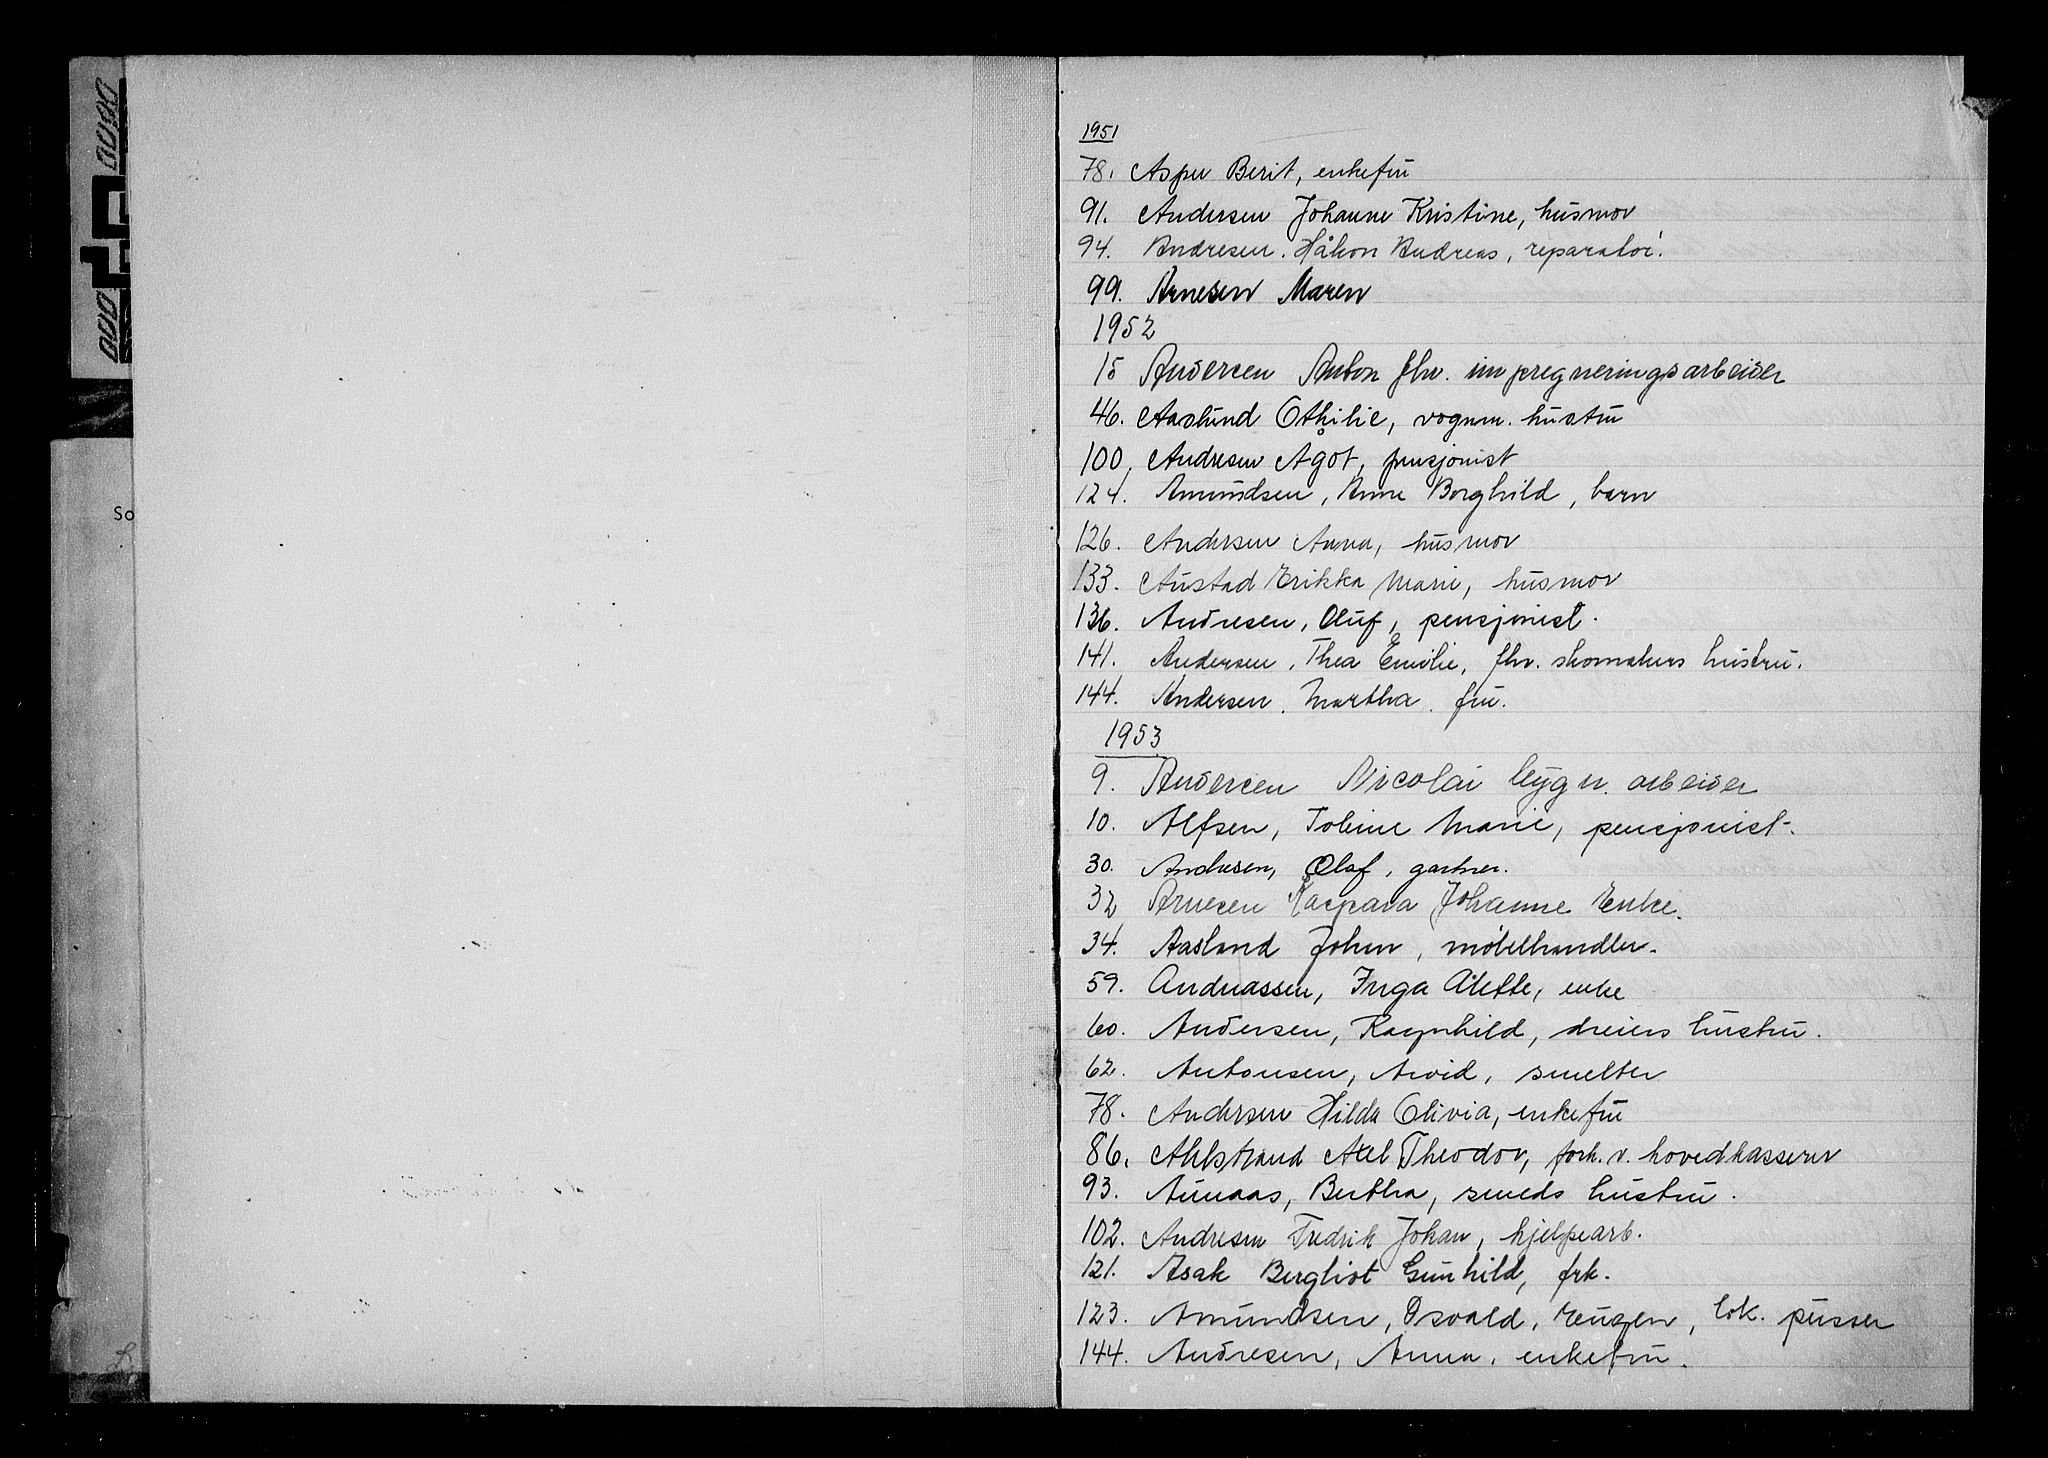 So
1951
78. Asper Berit, enkefru
91. Andersen Johanne Kristine, husmor
94. Andresen. Håkon Andreas, reparatør.
99. Arnesen Maren
1952
15 Andersen Anton fhv. impregneringsarbeider
46. Aaslund Othilie, vognm. hustru
100. Andresen Ågot, pensjonist
124. Amundsen, Anne Borghild, barn
126. Andersen Anna, husmor
133. Austad Erikka Marie, husmor
136. Andresen, Oluf, pensjonist.
141. Andersen, Thea Emilie, fhv. skomakers hustru.
144. Andersen. Martha. fru.
1953
9. Andersen Nicolai bygn. arbeider
10. Alfsen, Toline Marie, pensjonist.
30. Andresen, Olaf, gartner.
32 Arnesen Kaspara Johanne Enke.
34. Aasland Johan, møbelhandler.
59. Andreassen, Inga Ålette, enke
60. Andersen, Ragnhild, dreiers hustru.
62. Antonsen, Arvid, smelter
78. Andersen Hilda Olivia, enkefru
86. Ahlstrand Axel Theodor, forh. v. hovedkasserer
93. Aunaas, Bertha, smeds hustru.
102. Andresen Fredrik Johan, hjelpearb.
121. Asak Bergliot Gunhild, frk.
123. Amundsen, Osvald, Eugen, lok. pusser
144. Andresen, Anna. enkefru.